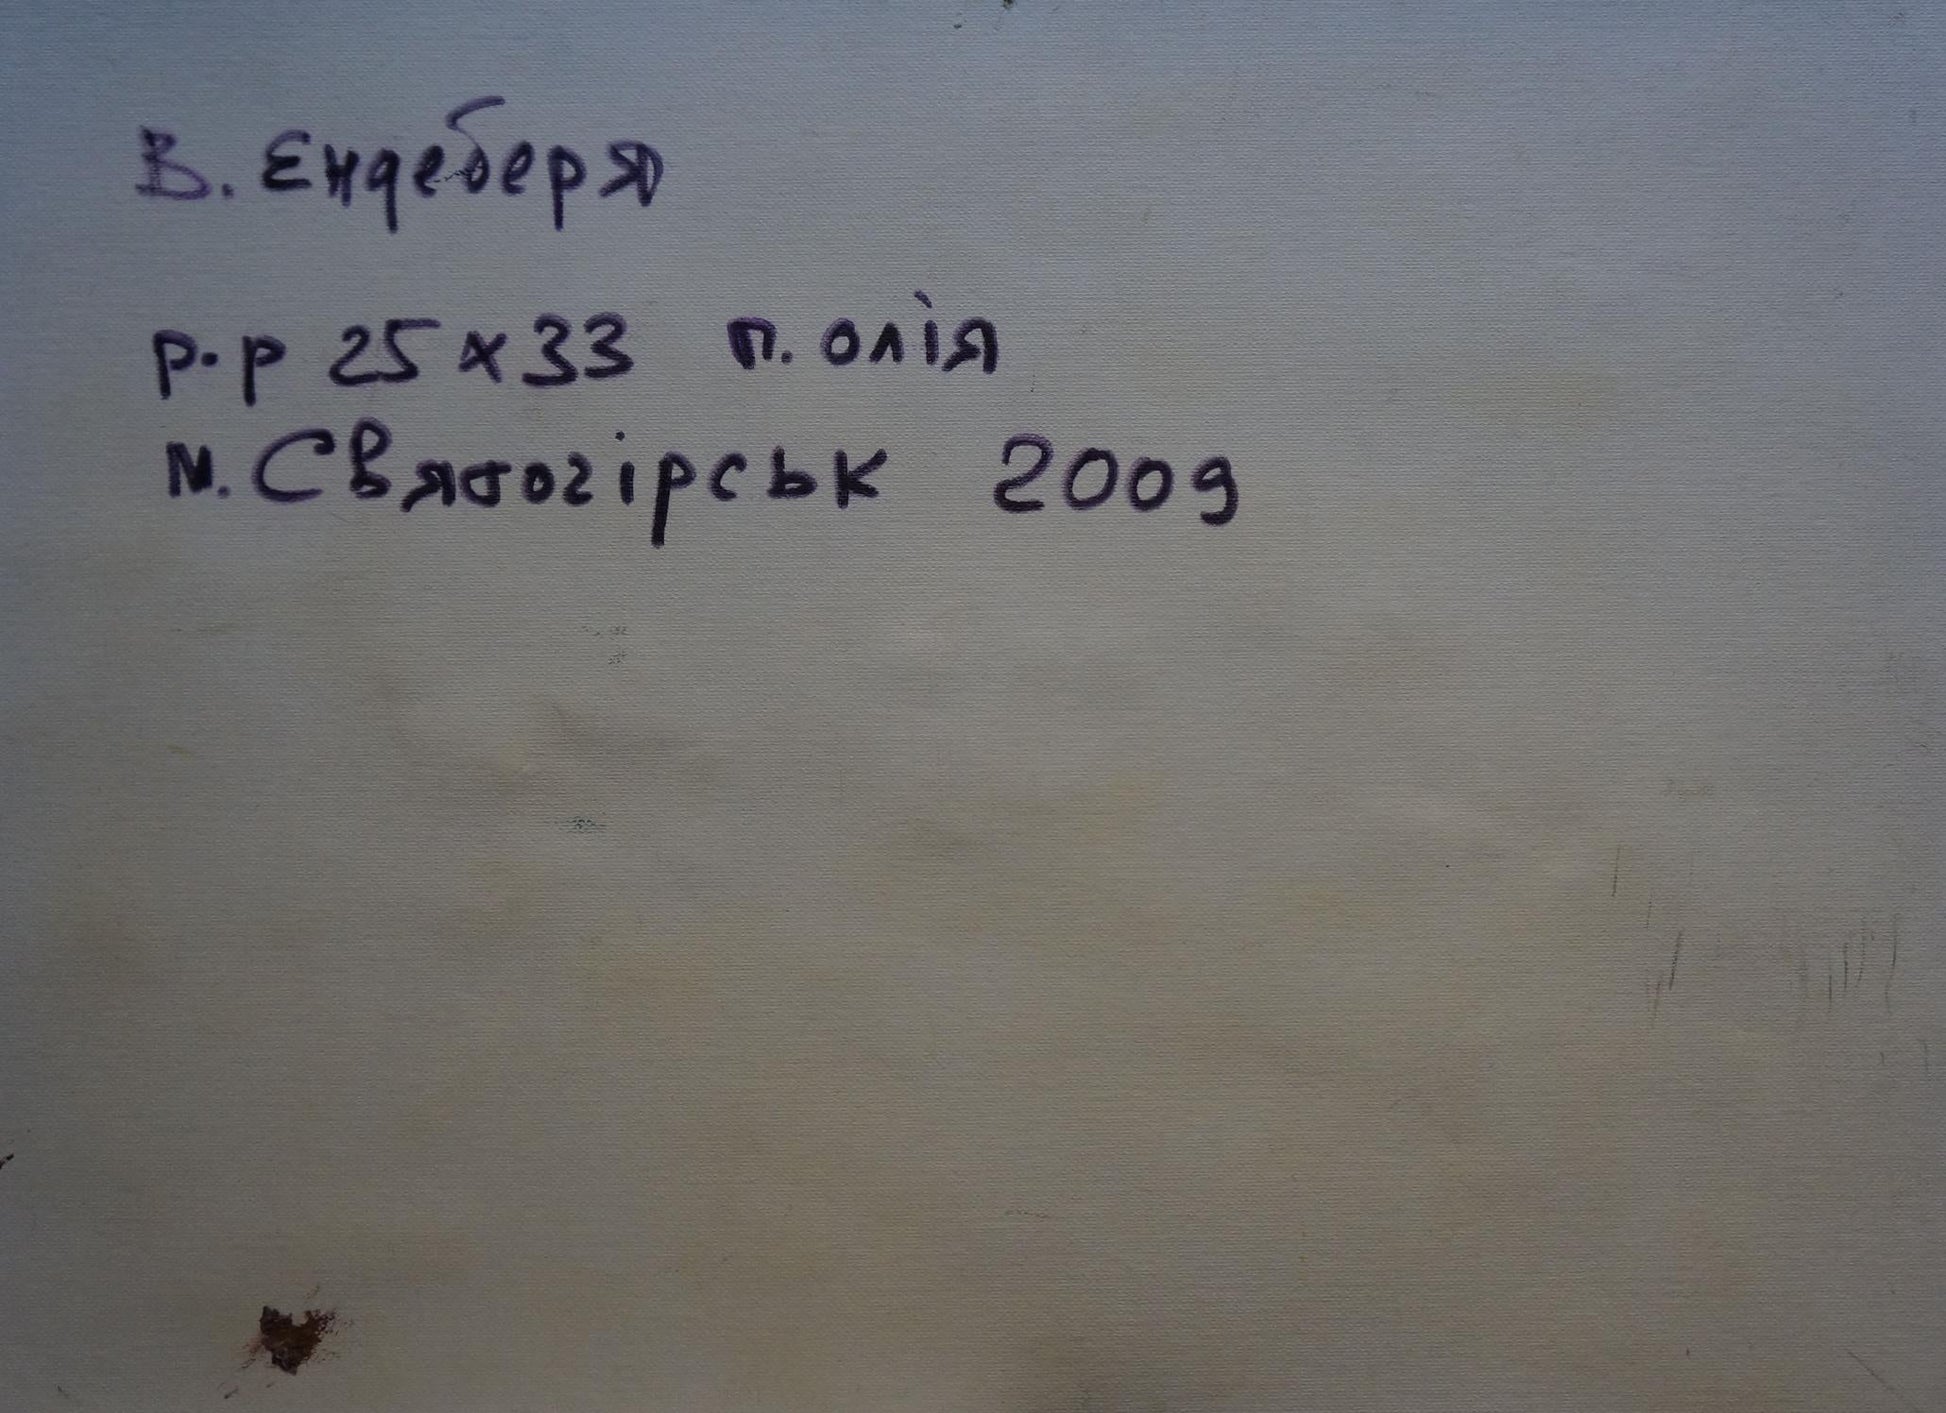 В. Єндеберя
р.р 25х33 п. олія
м. Святогірськ 2009